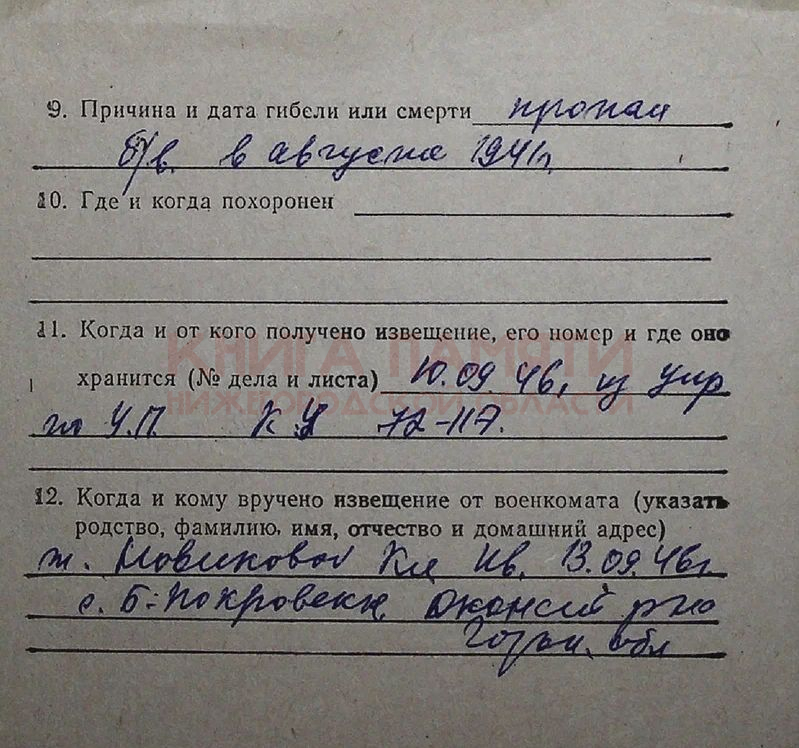 9. Причина и дата гибели или смерти пропал
б/в. в августе 1941г.
10. Где и когда похоронен
КНИГА ПАМЯТИ
НИЖЕГОРОДСКОЙ ОБЛАСТИ
11. Когда и от кого получено извещение, его номер и где оно
хранится (№ дела и листа) 10.09.46г из Упр
У.П. 72-117.
12. Когда и кому вручено извещение от военкомата (указать
родство, фамилию, имя, отчество и домашний адрес)
ж. Новиковой Кл Ив. 13.09.46г
с. Б-Покровское р-на
Горьк. обл